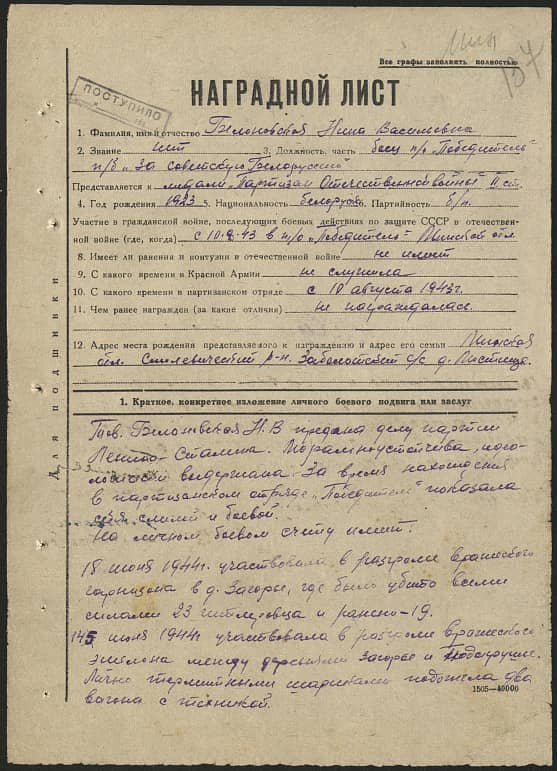 Все графы заполнять полностью
Мин
134
ПОСТУПИЛО
НАГРАДНОЙ ЛИСТ
1. Фамилия, имя и отчество Белоновская Нина Васильевна
2. Звание нет 3. Должность, часть боец п/о "Победитель"
п/б "За советскую Белоруссию"
Представляется к медали "Партизан Отечественной войны" II ст.
4. Год рождения 1923 5. Национальность белоруска 6. Партийность б/п.
Участие в гражданской войне, последующих боевых действиях по защите СССР в отечествен-
ной войне (где, когда) с 10.8.43 в п/о "Победитель" Минской обл
8. Имеет ли ранения и контузии в отечественной войне не имеет
9. С какого времени в Красной Армии не служила
10. С какого времени в партизанском отряде с 10 августа 1943г.
11. Чем ранее награжден (за какие отличия) не награждалась.
12. Адрес места рождения представляемого к награждению и адрес его семьи Минская
обл. Смолевический р-н. с/с д.
Для подшивки
1. Краткое, конкретное изложение личного боевого подвига или заслуг
Тов. Белоновская Н.В предана делу партии
Ленина-Сталина. Морально устойчива, идео-
логически выдержана. За время нахождения
в партизанском отряде "Победитель" показала
себя смелой и боевой.
На личном боевом счету имеет:
18 июня 1944г. участвовала в разгроме вражеского
гарнизона в д. Загорье, где было убито всеми
силами 23 гитлеровца и ранено-19.
июня 1944г участвовала в разгроме вражеского
эшелона между деревнями Загорье и
Лично термитными шариками подожгла два
вагона с техникой.
1505—40000